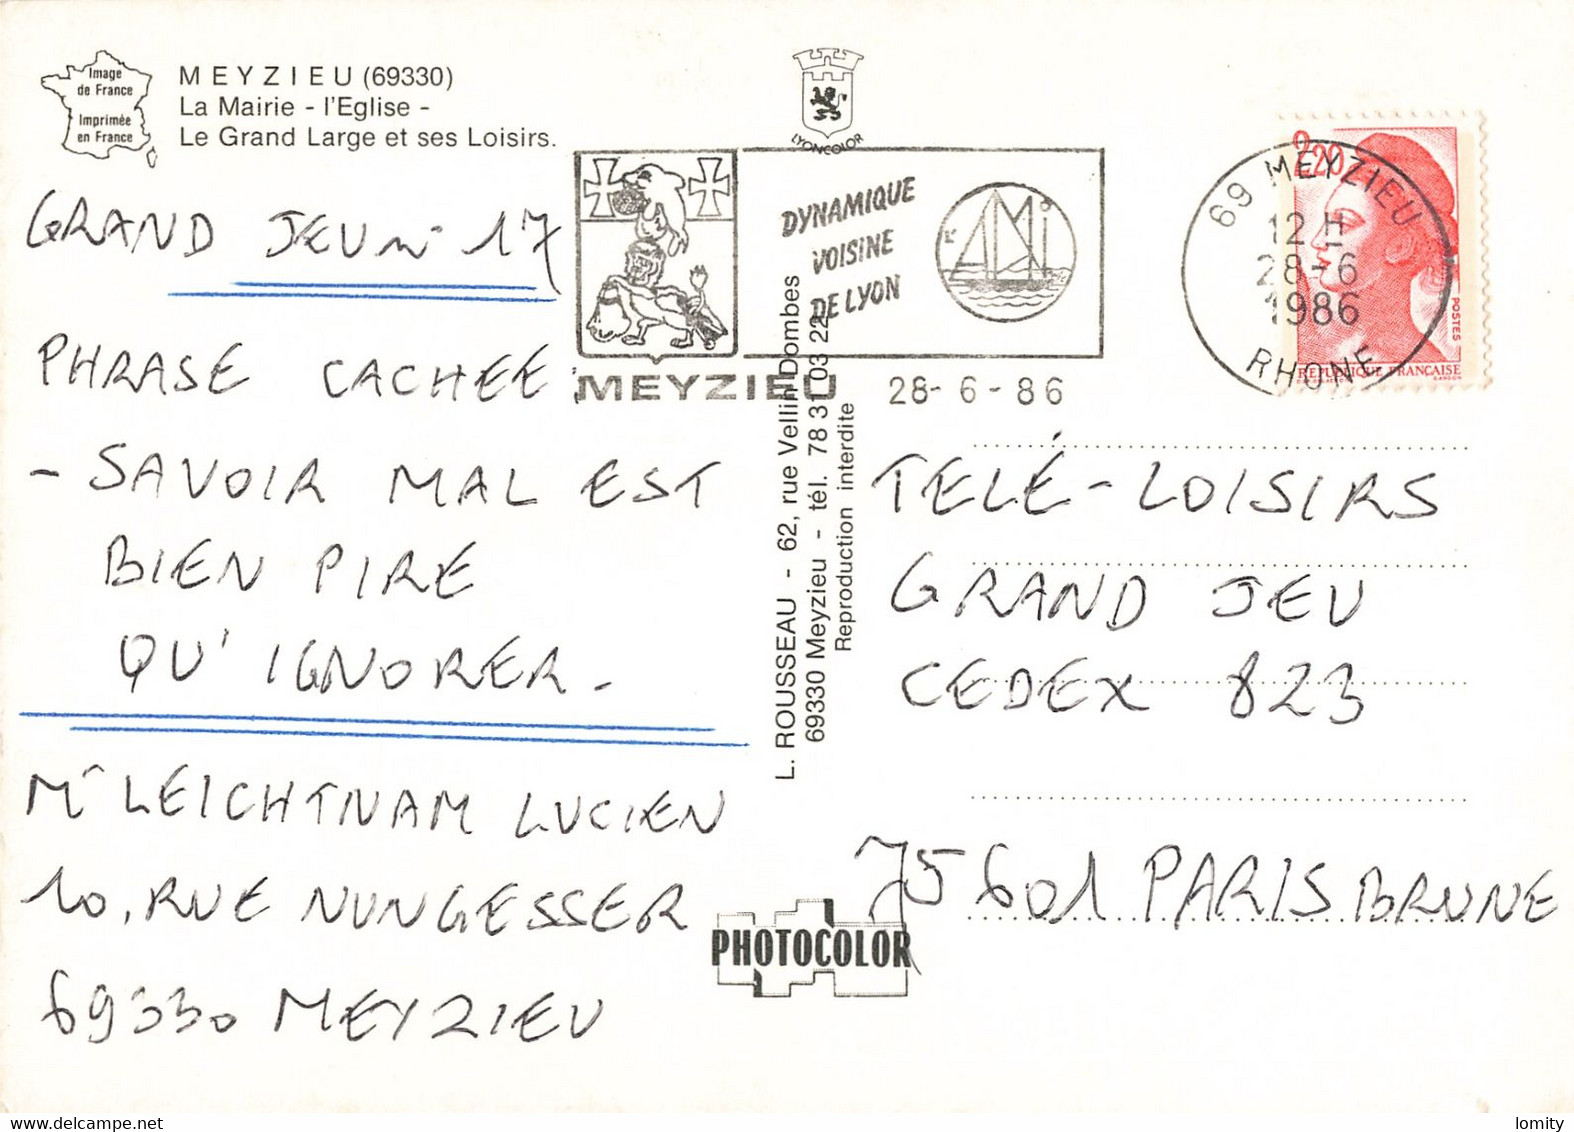 Image
de France
Imprimée
en France
MEYZIEU (69330)
La Mairie - l'Eglise -
Le Grand Large et ses Loisirs.
LYONCOLOR
GRAND JEU n° 17
PHRASE CACHEE
- SAVOIR MAL EST
BIEN PIRE
QU'IGNORER -
Mr LEICHTNAM LUCIEN
10, RUE NUNGESSER
69330 MEYZIEU
DYNAMIQUE
VOISINE
DE LYON
MEYZIEU 28-6-86
69 MEYZIEU
12 H
28-6
1986
RHONE
2,20
POSTES
REPUBLIQUE FRANÇAISE
GANDON
L. ROUSSEAU - 62, rue Vellin Dombes
69330 Meyzieu - tél. 78 31 03 22
Reproduction interdite
PHOTOCOLOR
TELÉ-LOISIRS
GRAND JEU
CEDEX 823
75601 PARIS BRUNE
lomity